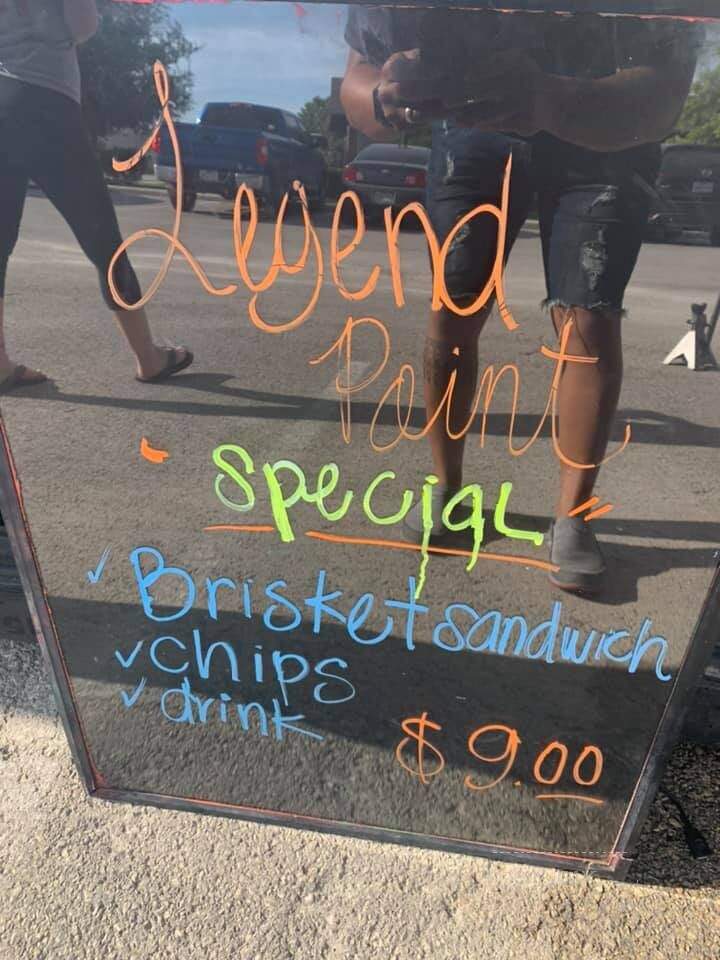 Legend
Point
"Special"
✓ Brisket sandwich
✓ chips
✓ drink
$9.00